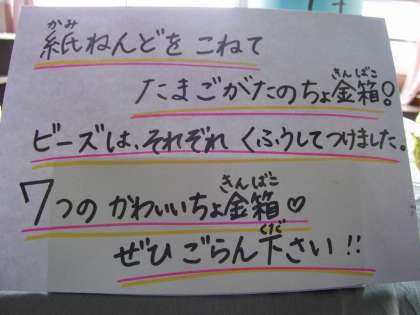 紙ねんどを こねて
たまごがたのちょ金箱!
ビーズは、それぞれ くふうしてつけました。
7つの かわいいちょ金箱♡
ぜひ ごらん下さい!!